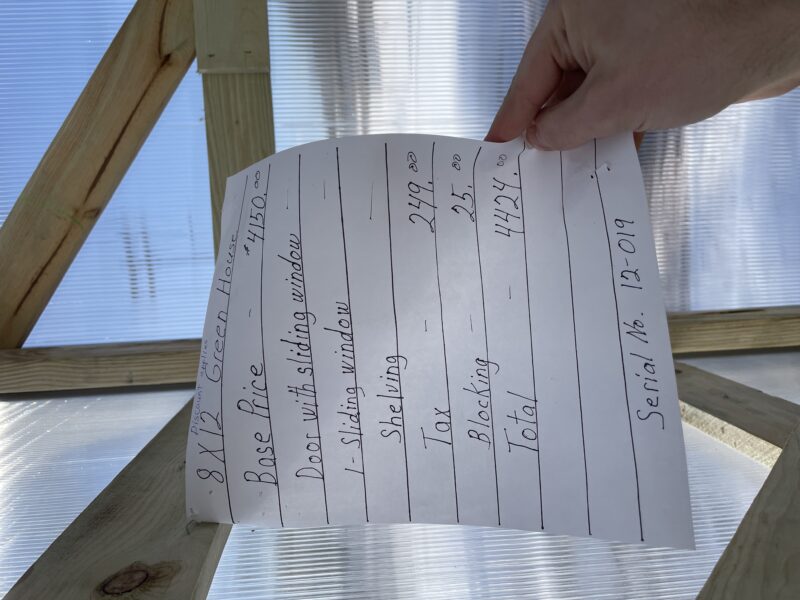 Discount applied
8 X 12 Green House
Base Price - $4150.00
Door with sliding window -
1 - Sliding window -
Shelving -
Tax - 249.00
Blocking - 25.00
Total - 4424.00
Serial No. 12-019